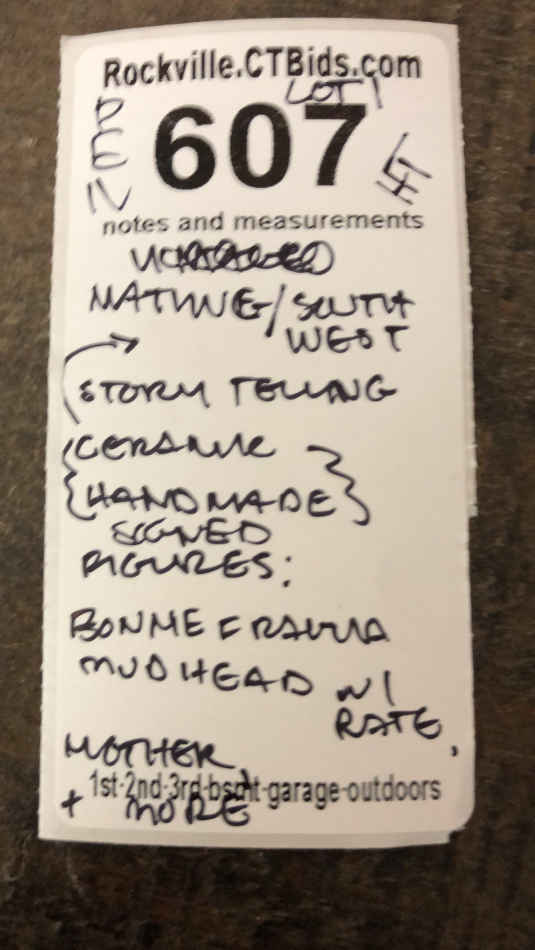 Rockville.CTBids.com
LOT 1
607
notes and measurements
NATIVE/SOUTH
WEST
STORY TELLING
CERAMIC
{HANDMADE}
SIGNED
FIGURES:
BONNIE FRAGUA
MUDHEAD W/
RATE,
MOTHER,
1st-2nd-3rd-bsmt-garage-outdoors
+ MORE